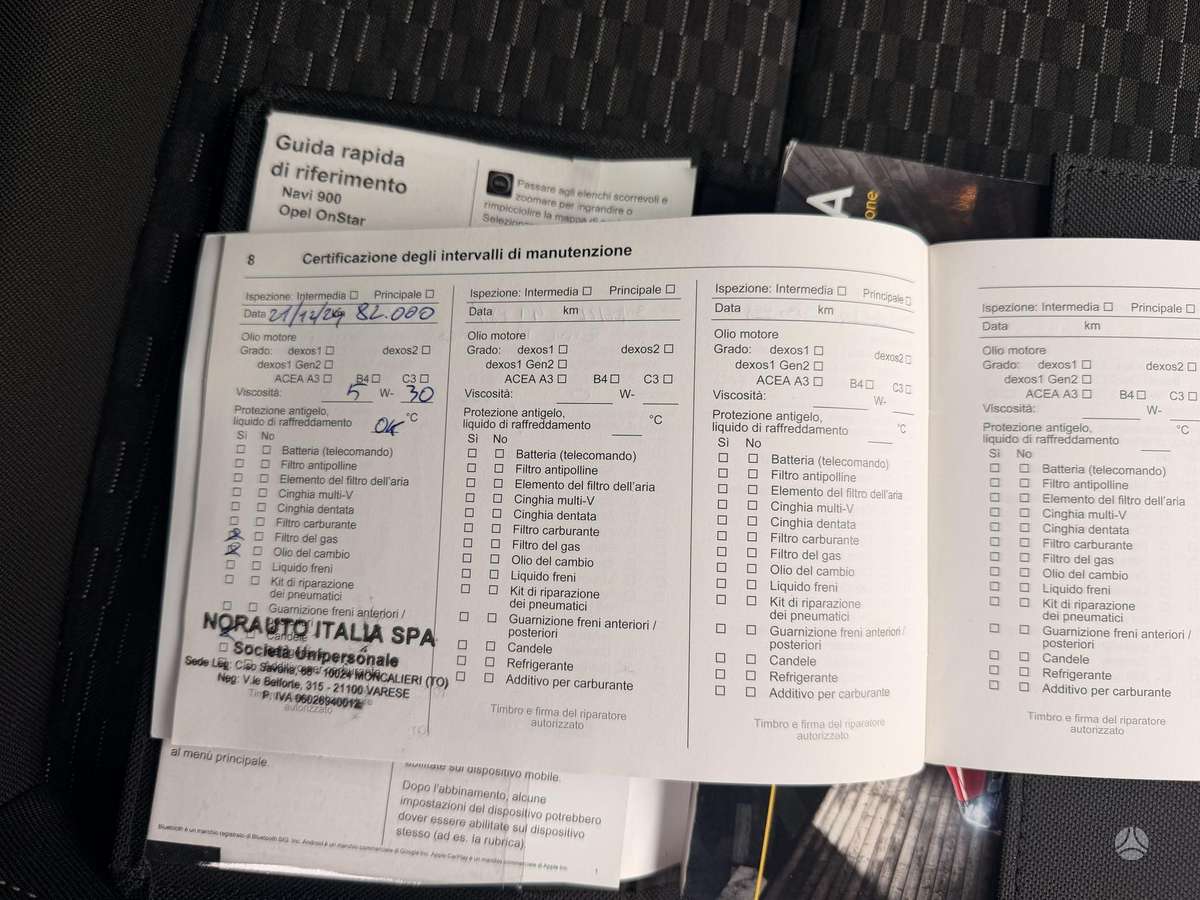 Guida rapida
di riferimento
Navi 900
Opel OnStar
Passare agli elenchi scorrevoli e
zoomare per ingrandire o
rimpicciolire la mappa di
A
one
8 Certificazione degli intervalli di manutenzione
Ispezione: Intermedia ☐ Principale ☐
Data 21/12/24 82.000
Olio motore
Grado: dexos1 ☐ dexos2 ☐
dexos1 Gen2 ☐
ACEA A3 ☐ B4 ☐ C3 ☐
Viscosità: 5 W- 30
Protezione antigelo,
liquido di raffreddamento OK °C
Sì No
☐ ☐ Batteria (telecomando)
☐ ☐ Filtro antipolline
☐ ☐ Elemento del filtro dell'aria
☐ ☐ Cinghia multi-V
☐ ☐ Cinghia dentata
☐ ☐ Filtro carburante
☒ ☐ Filtro del gas
☒ ☐ Olio del cambio
☐ ☐ Liquido freni
☐ ☐ Kit di riparazione
dei pneumatici
☐ ☐ Guarnizione freni anteriori /
NORAUTO ITALIA SPA
Candele
Società Unipersonale
Sede Leg: C.so Savona, 68 - 10024 MONCALIERI (TO)
Neg: V.le Belforte, 315 - 21100 VARESE
P. IVA 06026940012
autorizzato
Ispezione: Intermedia ☐ Principale ☐
Data km
Olio motore
Grado: dexos1 ☐ dexos2 ☐
dexos1 Gen2 ☐
ACEA A3 ☐ B4 ☐ C3 ☐
Viscosità: W-
Protezione antigelo,
liquido di raffreddamento °C
Sì No
☐ ☐ Batteria (telecomando)
☐ ☐ Filtro antipolline
☐ ☐ Elemento del filtro dell'aria
☐ ☐ Cinghia multi-V
☐ ☐ Cinghia dentata
☐ ☐ Filtro carburante
☐ ☐ Filtro del gas
☐ ☐ Olio del cambio
☐ ☐ Liquido freni
☐ ☐ Kit di riparazione
dei pneumatici
☐ ☐ Guarnizione freni anteriori /
posteriori
☐ ☐ Candele
☐ ☐ Refrigerante
☐ ☐ Additivo per carburante
Timbro e firma del riparatore
autorizzato
Ispezione: Intermedia ☐ Principale ☐
Data km
Olio motore
Grado: dexos1 ☐ dexos2 ☐
dexos1 Gen2 ☐
ACEA A3 ☐ B4 ☐ C3 ☐
Viscosità: W-
Protezione antigelo,
liquido di raffreddamento °C
Sì No
☐ ☐ Batteria (telecomando)
☐ ☐ Filtro antipolline
☐ ☐ Elemento del filtro dell'aria
☐ ☐ Cinghia multi-V
☐ ☐ Cinghia dentata
☐ ☐ Filtro carburante
☐ ☐ Filtro del gas
☐ ☐ Olio del cambio
☐ ☐ Liquido freni
☐ ☐ Kit di riparazione
dei pneumatici
☐ ☐ Guarnizione freni anteriori /
posteriori
☐ ☐ Candele
☐ ☐ Refrigerante
☐ ☐ Additivo per carburante
Timbro e firma del riparatore
autorizzato
Ispezione: Intermedia ☐ Principale ☐
Data km
Olio motore
Grado: dexos1 ☐ dexos2 ☐
dexos1 Gen2 ☐
ACEA A3 ☐ B4 ☐ C3 ☐
Viscosità: W-
Protezione antigelo,
liquido di raffreddamento °C
Sì No
☐ ☐ Batteria (telecomando)
☐ ☐ Filtro antipolline
☐ ☐ Elemento del filtro dell'aria
☐ ☐ Cinghia multi-V
☐ ☐ Cinghia dentata
☐ ☐ Filtro carburante
☐ ☐ Filtro del gas
☐ ☐ Olio del cambio
☐ ☐ Liquido freni
☐ ☐ Kit di riparazione
dei pneumatici
☐ ☐ Guarnizione freni anteriori /
posteriori
☐ ☐ Candele
☐ ☐ Refrigerante
☐ ☐ Additivo per carburante
Timbro e firma del riparatore
autorizzato
al menù principale.
abilitate sul dispositivo mobile.
Dopo l'abbinamento, alcune
impostazioni del dispositivo potrebbero
dover essere abilitate sul dispositivo
stesso (ad es. la rubrica).
Bluetooth è un marchio registrato di Bluetooth SIG, Inc. Android è un marchio commerciale di Google Inc. Apple CarPlay è un marchio commerciale di Apple Inc.
1